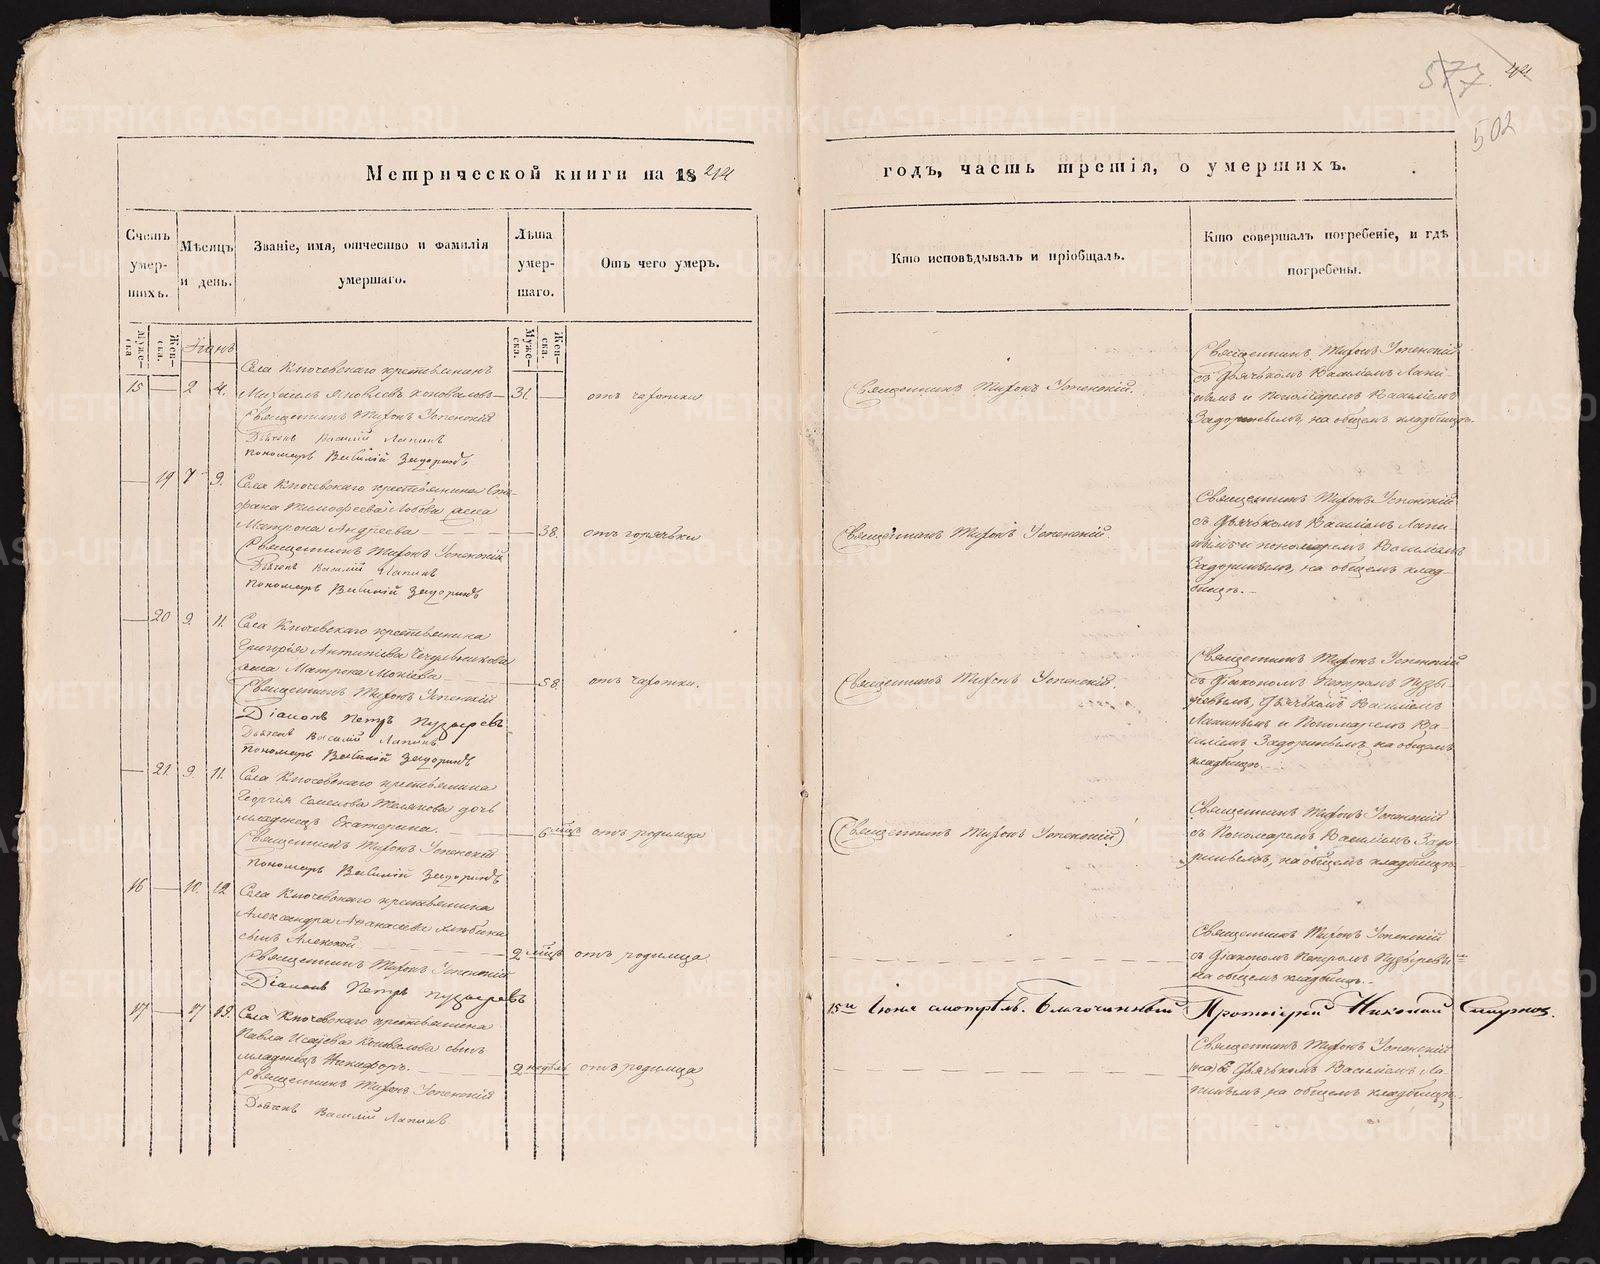 577.
502
Метрической книги на 18
годъ, часть третія, о умершихъ.
Счетъ умер-шихъ.
Мѣсяцъ и день.
Званіе, имя, отчество и фамилія умершаго.
Лѣта умер-шаго.
Отъ чего умеръ.
Кто исповѣдывалъ и пріобщалъ.
Кто совершалъ погребеніе, и гдѣ погребены.
Муже-ска
Жен-ска.
Іюнь
Муже-ска.
Жен-ска.
15 — 2 4.
Села Ключевскаго крестьянинъ
Михаилъ Яковлевъ Коноваловъ — 31. —
отъ чахотки
Священникъ Тихонъ Успенскій
Дьячекъ Василій Лапинъ
Пономарь Василій Задоринъ
Священникъ Тихонъ Успенскій.
Священникъ Тихонъ Успенскій
съ Дьячькомъ Василіемъ Лапи-
нымъ и Пономаремъ Василіемъ
Задоринымъ, на общемъ кладбищѣ.
— 19 7 9.
Села Ключевскаго крестьянина Сте-
фана Тимофеева Лобова жена
Матрона Андреева — 38.
отъ горячьки
Священникъ Тихонъ Успенскій
Дьячекъ Василій Лапинъ
Пономарь Василій Задоринъ
Священникъ Тихонъ Успенскій.
Священникъ Тихонъ Успенскій
съ Дьячькомъ Василіемъ Лапи-
нымъ и пономаремъ Василіемъ
Задоринымъ, на общемъ клад-
бищѣ. —
— 20 9. 11.
Села Ключевскаго крестьянина
Григорія Антипьева
жена Матрона Мокіева — 58.
отъ чахотки.
Священникъ Тихонъ Успенскій
Діаконъ Петръ Пузыревъ
Дьячекъ Василій Лапинъ
Пономарь Василій Задоринъ
Священникъ Тихонъ Успенскій.
Священникъ Тихонъ Успенскій
съ Діакономъ Петромъ Пузы-
ревымъ, Дьячькомъ Василіемъ
Лапинымъ и Пономаремъ Ва-
силіемъ Задоринымъ, на общемъ
кладбищѣ. —
— 21. 9. 11.
Села Ключевскаго крестьянина
Георгія Семенова дочь
младенецъ Екатерина. — 6 мѣц
отъ родимца
Священникъ Тихонъ Успенскій
Пономарь Василій Задоринъ
(Священникъ Тихонъ Успенскій.)
Священникъ Тихонъ Успенскій
съ Пономаремъ Василіемъ Задо-
ринымъ, на общемъ кладбищѣ.
16 — 10. 12
Села Ключевскаго крестьянина
Александра Аѳанасьева
сынъ Алексѣй — 2 мѣц
отъ родимца
Священникъ Тихонъ Успенскій
Діаконъ Петръ Пузыревъ
Священникъ Тихонъ Успенскій
съ Діакономъ Петромъ Пузыревы
на общемъ кладбищѣ.
15го Іюня смотрѣлъ. Благочинный Протоіерей Николай Смирнов.
17 — 17 19.
Села Ключевскаго крестьянина
Павла Исаева Коновалова сынъ
младенецъ Никифоръ. — 2 недѣль
отъ родимца
Священникъ Тихонъ Успенскій
Дьячекъ Василій Лапинъ
Священникъ Тихонъ Успенскій
съ Дьячькомъ Василіемъ Ла-
пинымъ, на общемъ кладбищѣ.
METRIKI.GASO-URAL.RU